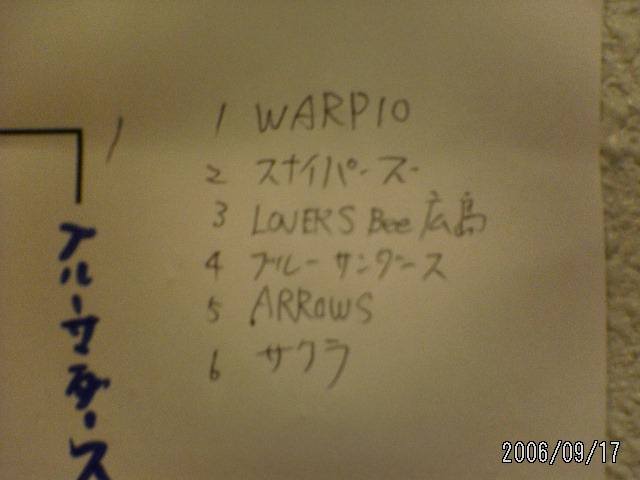 1
1 WARP10
2 スナイパーズ
3 LOVERS Bee 広島
4 ブルーサンダース
5 ARROWS
6 サクラ
ブルーサンダース
2006/09/17